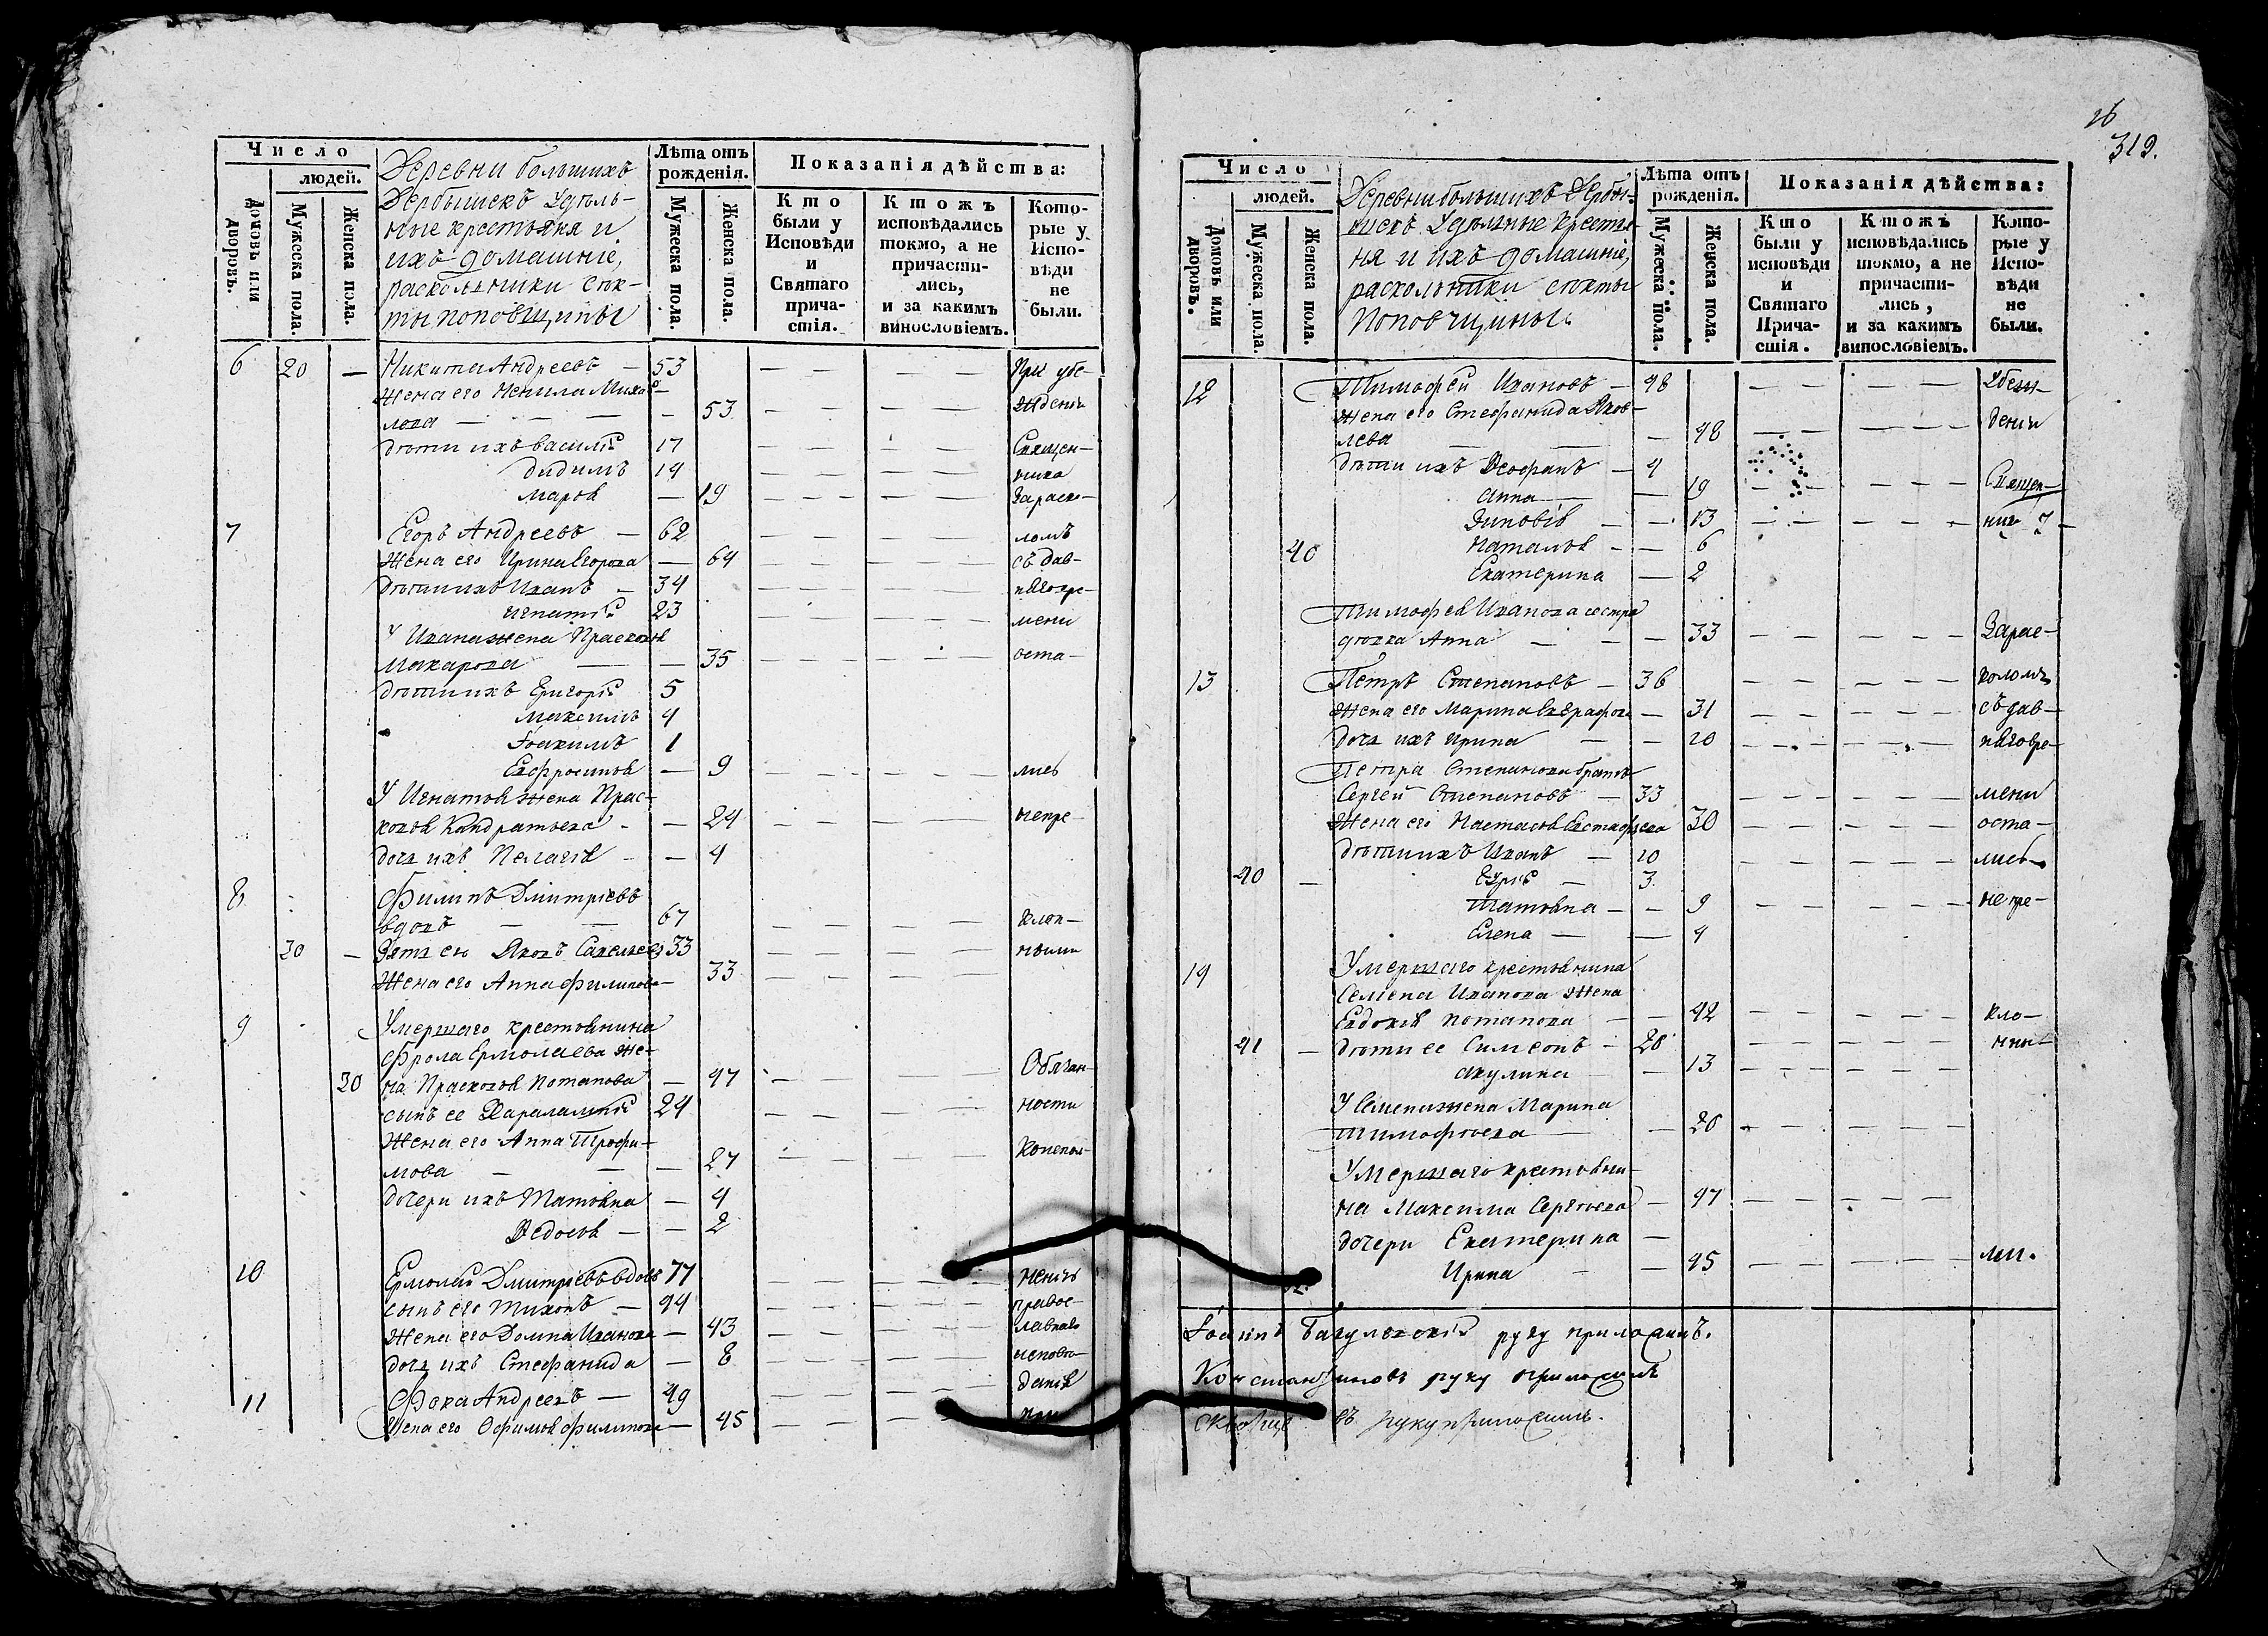 Число
людей.
Домовъ или дворовъ.
Мужеска пола.
Женска пола.
Деревни большихъ
Дербышекъ Удѣль-
ные крестьяня и
ихъ домашніе,
раскольники сек-
ты поповщины
Лѣта отъ рожденія.
Мужеска пола.
Женска пола.
Показанія дѣйства:
Кто были у Исповѣди и Святаго причастія.
Ктожъ исповѣдались токмо, а не причастились, и за какимъ винословіемъ.
Которые у Исповѣди не были.
6 20 — Никита Андреевъ — 53 — — — — При убе-
жена его Ненила Михай-
лова — — — 53 — — — — жденіи
дѣти ихъ Василій 17 — — — — Священ-
Дидимъ 14 — — — — ника
Марѳа — 19 — — — — За раско-
7 Егоръ Андреевъ — 62 — — — — ломъ
жена его Ирина Егорова — 64 — — — — съ дав-
дѣти ихъ Иванъ — 34 — — — — няго вре-
Игнатій 23 — — — — мени
У Ивана жена Прасковья
Макарова — — 35 — — — — оста-
дѣти ихъ Григорій 5
Максимъ 4
Іоакимъ 1
Евфросинья — 9 — — — — лись
У Игнатья жена Прас-
ковья Кондратьева — — 24 — — — — непре-
дочь ихъ Пелагія — — 4
8 Филипъ Дмитріевъ
вдовъ — — 67 — — — — клон-
30 — Зять его Яковъ Савельевъ 33 — — — — ными
жена его Анна Филипова — 33 — — — —
9 Умершаго крестьянина
Фрола Ермолаева же-
30 на Прасковья Потапова — 47 — — — Обязан-
сынъ ее Харалампій 24 — — — — ности
жена его Анна Трофи-
мова — — — 27 — — — —
дочери их Татьяна — 4
Ѳедосья — — 2
10 Ермолай Дмитріевъ вдовъ 77 — — — —
сынъ его Тихонъ — 44 — — — — правос-
жена его Домна Иванова — 43 — — — — лавнаго
дочь ихъ Стефанида — 8 — — — — исповѣ-
11 Фока Андреевъ — 49 — — — — данія
жена его Офимья Филипова — 45 — — — —
16
319.
Число
людей.
Домовъ или дворовъ.
Мужеска пола.
Женска пола.
Деревни большихъ Дербы-
шекъ Удѣльные крестья-
ня и ихъ домашніе,
раскольники секты
Поповчщины.
Лѣта отъ рожденія.
Мужеска пола.
Женска пола.
Показанія дѣйства:
Кто были у исповѣди и Святаго Причастія.
Ктожъ исповѣдались токмо, а не причастились, и за какимъ винословіемъ.
Которые у Исповѣди не были.
12 Тимофей Ивановъ — 48 — — — —
жена его Стефанида Яков-
лева — — — 48 — — — — деніи
дѣти ихъ Ѳеофанъ — 4
Анна — — 19 — — — — Священ-
Зиновія — — 13 — — — —
40 Наталья — — 6
Екатерина — 2
Тимофея Иванова сестра
дѣвка Анна — — — 33 — — — — За рас-
13 Петръ Степановъ — 36 — — — — коломъ
жена его Марина Евграфова — 31 — — — — съ дав-
дочь ихъ Ирина — — 10 — — — — няго вре-
Петра Степанова братъ
Сергей Степановъ — 33 — — — — мени
жена его Настасья Евстафьева 30 — — — — оста-
дѣти ихъ Иванъ — 10 — — — — лись
40 — — 3
Татьяна — — 9 — — — — непре-
Елена — — 4
14 Умершаго крестьянина
Семена Иванова жена
Евдокія Потапова — — 42 — — — — кло-
41 — дѣти ее Симеонъ — 20 — — — — нны-
Акулина — — 13 — — — —
У Семена жена Марина
Тимофѣева — — 20 — — — —
Умершаго крестьяни-
на Максима Сергѣева — 47 — — — —
дочери Екатерина —
Ирина — — 45 — — — — ми.
Іоаннъ Багулевскій руку приложилъ.
Константиновъ руку приложилъ
руку приложилъ.